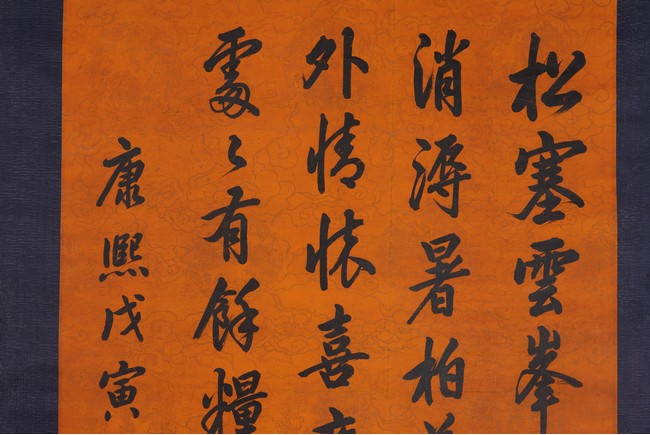 松塞雲峯
消溽暑柏
外情懐喜
處〻有餘糧
康熙戊寅